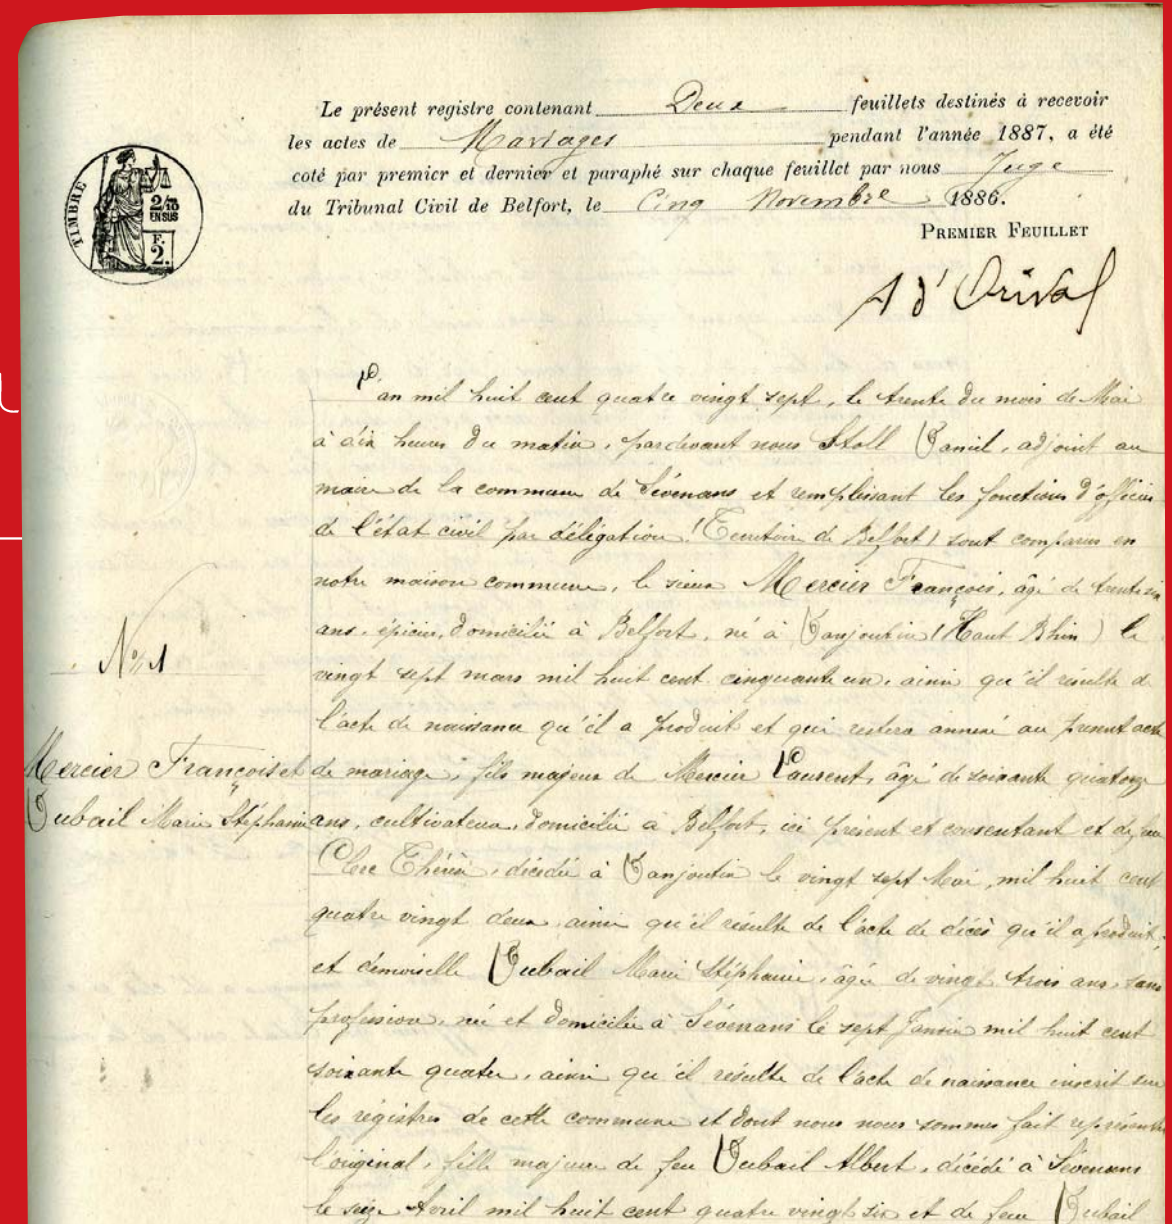 Le présent registre contenant Deux feuillets destinés à recevoir
les actes de Mariages pendant l'année 1887, a été
coté par premier et dernier et paraphé sur chaque feuillet par nous Juge
du Tribunal Civil de Belfort, le Cinq Novembre 1886.
PREMIER FEUILLET
TIMBRE
2/10
EN SUS
F.
2.
A d'Orival
L'an mil huit cent quatre vingt sept, le trente du mois de Mai
à dix heures du matin, pardevant nous Stoll Daniel, adjoint au
maire de la commune de Sévenans et remplissant les fonctions d'officier
de l'état civil par délégation (Territoire de Belfort) sont comparus en
notre maison commune, le sieur Mercier François, âgé de trente six
ans, épicier, domicilié à Belfort, né à Danjoutin (Haut Rhin) le
vingt sept mars mil huit cent cinquante un, ainsi qu'il résulte de
l'acte de naissance qu'il a produit et qui restera annexé au présent acte
de mariage, fils majeur de Mercier Laurent, âgé de soixante quatorze
ans, cultivateur, domicilié à Belfort, ici présent et consentant et de feue
Clerc Thérèse, décédée à Danjoutin le vingt sept Mai mil huit cent
quatre vingt deux, ainsi qu'il résulte de l'acte de décès qu'il a produit,
et demoiselle Dubail Marie Stéphanie, âgée de vingt trois ans, sans
profession, née et domiciliée à Sévenans le sept Janvier mil huit cent
soixante quatre, ainsi qu'il résulte de l'acte de naissance inscrit sur
les régistres de cette commune et dont nous nous sommes fait représenter
l'original, fille majeure de feu Dubail Albert, décédé à Sévenans
le seize Avril mil huit cent quatre vingt six et de feue Dubail
N° 1
Mercier François et
Dubail Marie Stéphanie